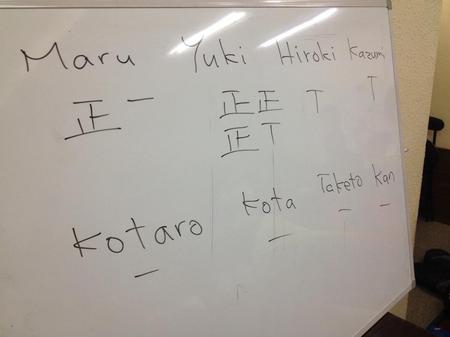 Maru Yuki Hiroki Kazumi
正 一 正正 T T
正 T
Kotaro Kota Taketo Kan
一 一 一 一